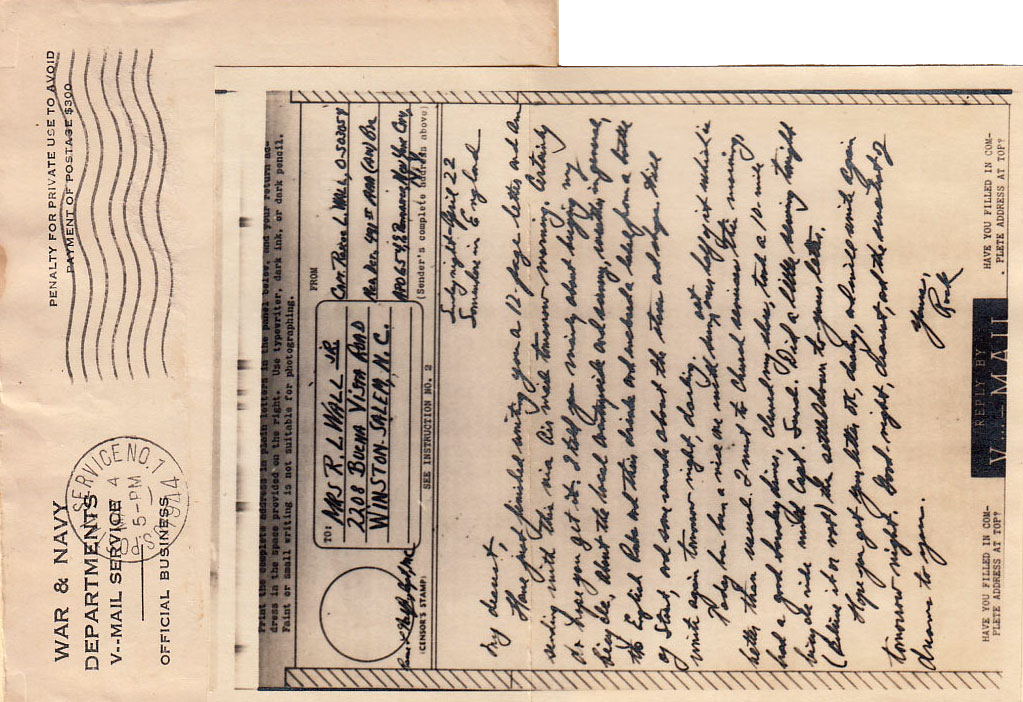 WAR & NAVY
DEPARTMENTS
V--MAIL SERVICE
OFFICIAL BUSINESS
PENALTY FOR PRIVATE USE TO AVOID
PAYMENT OF POSTAGE $300
SERVICE NO. 1
4
5-PM
1944
Print the complete address in plain letters in the panel below, and your return ad-
dress in the space provided on the right. Use typewriter, dark ink, or dark pencil.
Faint or small writing is not suitable for photographing.
TO:
MRS R. L. WALL JR
2208 BUENA VISTA ROAD
WINSTON-SALEM, N.C.
FROM
APO 654, % Postmaster, New York City,
N.Y.
(CENSOR'S STAMP)
SEE INSTRUCTION NO. 2
(Sender's complete address above)
Sunday night - April 22
Somewhere in England
My dearest
Have just finished writing you a 12-page letter and am
sending with this via Air mail tomorrow morning. Certainly
do hope you get it. I tell you mainly about buying my
bicycle, about the local countryside and scenery,
the English Pubs and their drinks and
of Scotch, and some remarks about the
write again tomorrow night, darling.
Today has been a nice one with
better than usual. I went to Church services this morning,
had a good Sunday dinner, shined my shoes, took a 10-mile
bicycle ride with Capt. Did a little sewing tonight
(believe it or not) & then settled down to your letter.
Hope you get my letter ok, darling, and will write again
tomorrow night. Good-night, dearest, and the sweetest of
dreams to you.
Yours,
HAVE YOU FILLED IN COM-
PLETE ADDRESS AT TOP?
REPLY BY
V--MAIL
HAVE YOU FILLED IN COM-
PLETE ADDRESS AT TOP?